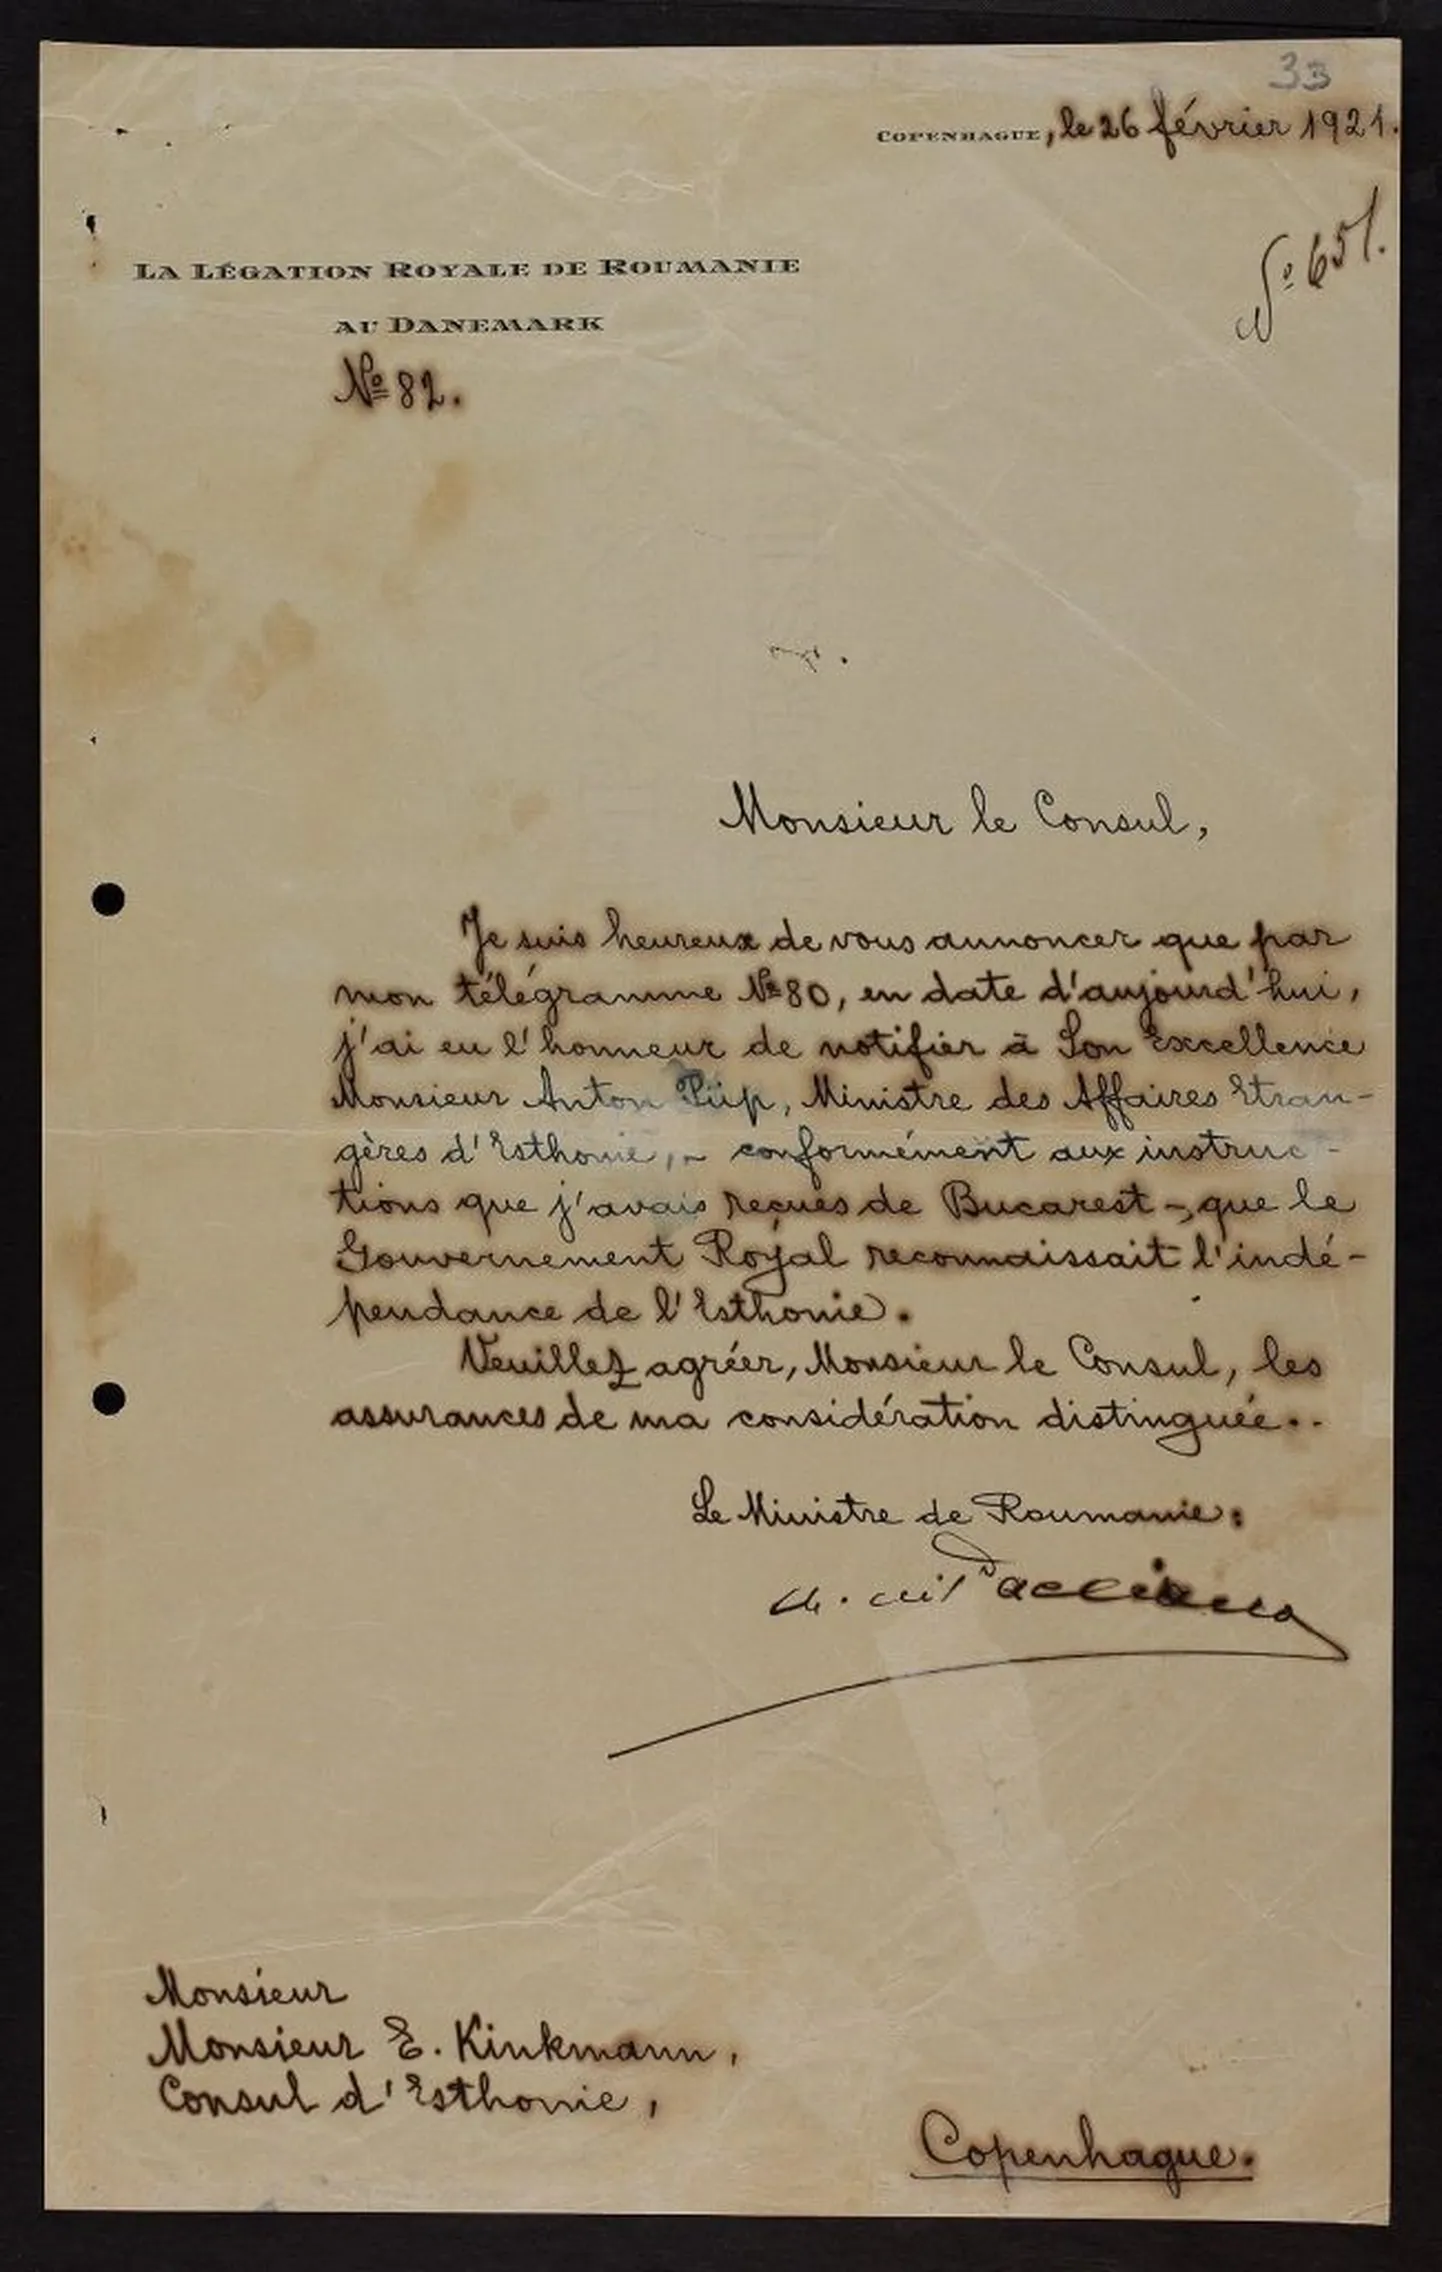 33
COPENHAGUE, le 26 février 1921.
No 651.
LA LÉGATION ROYALE DE ROUMANIE
AU DANEMARK
No 82.
Monsieur le Consul,
Je suis heureux de vous annoncer que par
mon télégramme No 80, en date d'aujourd'hui,
j'ai eu l'honneur de notifier à Son Excellence
Monsieur Anton Piip, Ministre des Affaires Etran-
gères d'Esthonie, - conformément aux instruc-
tions que j'avais reçues de Bucarest -, que le
Gouvernement Royal reconnaissait l'indé-
pendance de l'Esthonie.
Veuillez agréer, Monsieur le Consul, les
assurances de ma considération distinguée..
Le Ministre de Roumanie:
Monsieur
Monsieur E. Kinkmann,
Consul d'Esthonie,
Copenhague.